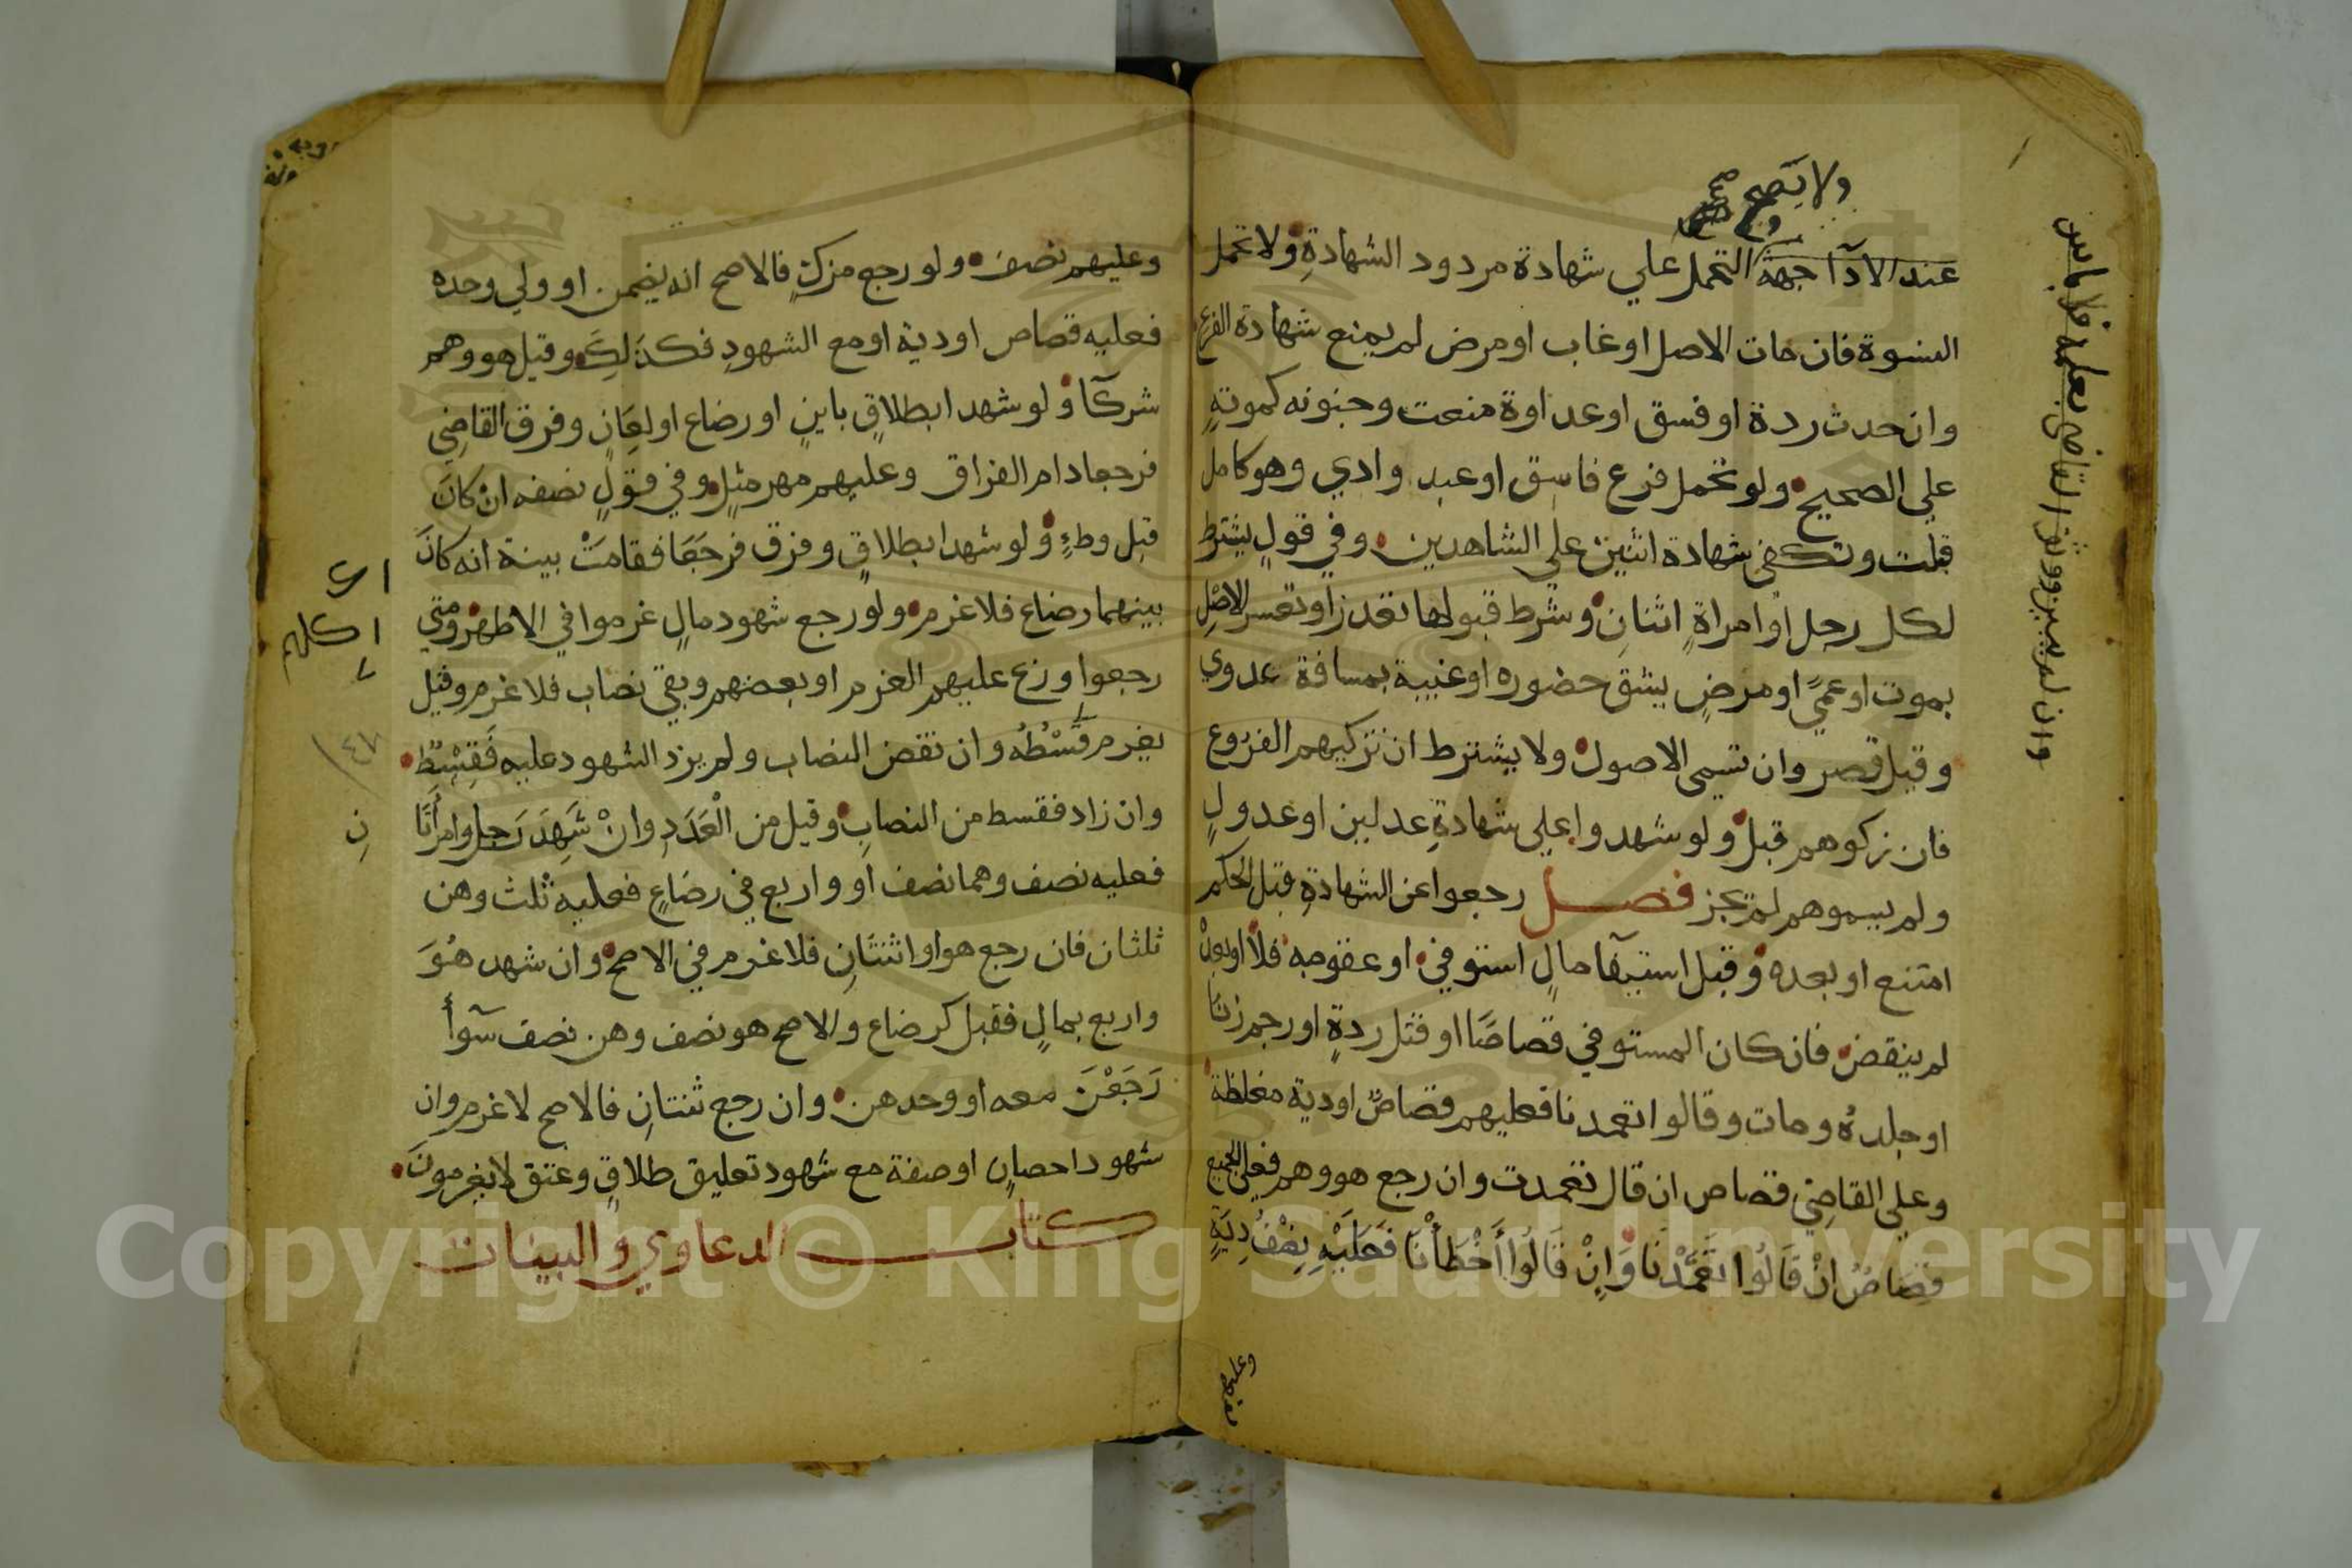 ولا يصح صح
عند الآدا جهة التحمل علي شهادة مردود الشهادةِ ولا تحمل
النسوة فان مات الاصل او غاب او مرض لم يمنع شهادة الفرع
وان حدث ردة او فسق او عداوة منعت وجنونه كموتهِ
علي الصحيح ولو تحمل فرع فاسق او عبد وادي وهو كامل
قبلت وتكفي شهادة اثنين علي الشاهدين وفي قولٍ يشترط
لكل رجل او امراةٍ اثنانِ وشرط قبولها تعذر او تعسر الاصْلِ
بموت او عميً او مرضٍ يشق حضوره او غيبة بمسافة عدوي
وقيل قصر وان تسمي الاصول ولا يشترط ان تزكيهم الفروع
فان زكوهم قبل ولو شهدوا علي شهادةِ عدلين او عدولٍ
ولم يسموهم لم تجز فصل رجعوا عن الشهادةِ قبل الحكم
امتنع او بعده وقبل استيفآ مالٍ استوفي او عقوبة فلا او بعدْ
لم ينقض فان كان المستوفي قصاصًا او قتل ردةٍ او رجم زنا
او جلدهُ ومات وقالوا تعمدنا فعليهم قصاصٌ او دية مغلظة
وعلي القاضِي قصاص ان قال تعمدت وان رجع هو وهم فعلي الجميع
قِصَاصٌ انْ قَالُوا تَعَمَّدْنَا وَانْ قَالُوا أَخْطَأْنَا فَعَلَيْهِ نِصْفُ دِيَةٍ
وعليهم نصف
وان لم يبين ووثق القاضي بعلمه فلا باس
وعليهم نصف ولو رجع مزكٍ فالاصح انه يضمن او ولي وحده
فعليه قصاص او دية او مع الشهودِ فكذَلِكَ وقيل هو وهم
شركآ ولو شهدا بطلاقٍ باينٍ او رضاع او لِعَانٍ وفرق القاضِي
فرجعا دام الفراق وعليهم مهر مثلٍ وفي قولٍ نصفه انْ كانَ
قبل وطءٍ ولو شهدا بطلاقٍ وفرق فرجَعَا فقامَتْ بينة انه كانَ
بينهما رضاع فلا غرم ولو رجع شهود مالٍ غرموا في الاظهر ومتي
رجعوا وزع عليهم الغرم او بعضهم وبقي نصاب فلا غرم وقيل
يغرم قِسْطَهُ وان نقص النصاب ولم يزد الشهود عليه فَقِسْطٌ
وان زاد فقسط من النصابِ وقيل من الْعَدَدِ وانْ شَهِدَ رَجل وامرأتَا
فعليه نصف وهما نصف او واربع في رضاعٍ فعليه ثلث وهن
ثلثان فان رجع هو او اثنتَانِ فلا غرم في الاصح وان شهد هُوَ
واربع بمالٍ فقيل كرضاع والاصح هو نصف وهن نصف سوآأ
رَجَعْنَ معه او وحدهن وان رجع ثنتانِ فالاصح لا غرم وان
شهود احصانٍ او صفة مع شهود تعليق طلاقٍ وعتق لا يغرمونَ
كتاب الدعاوي والبينات
كلهم
٤٧
نِ